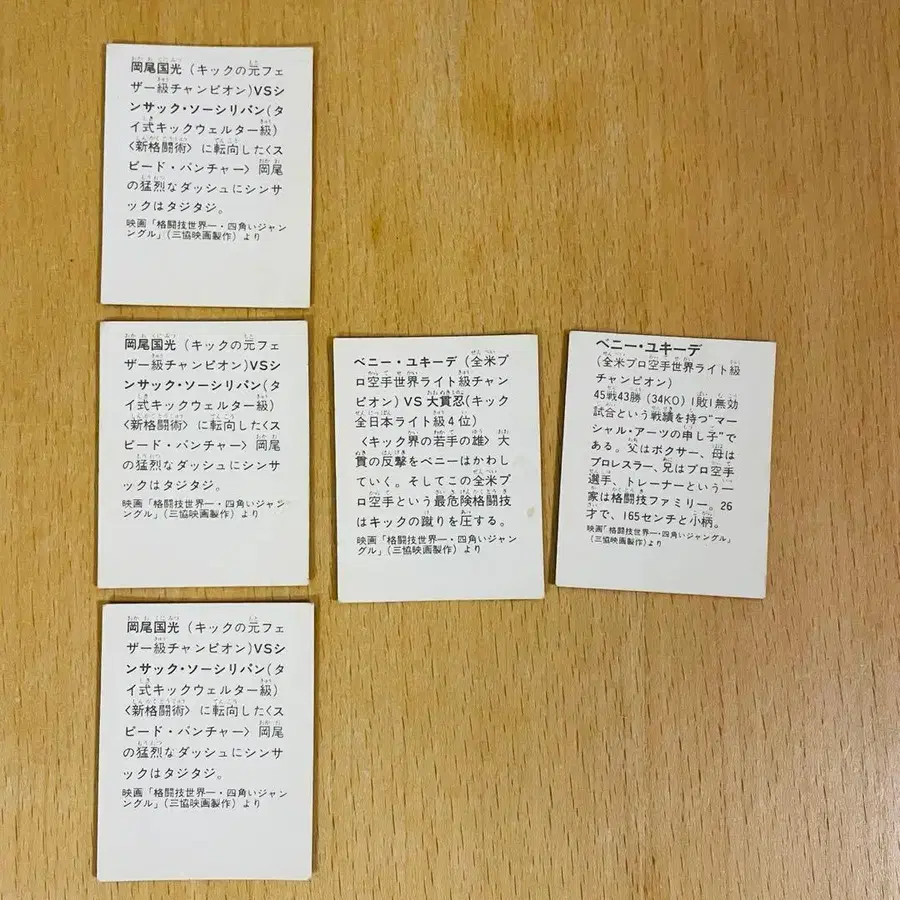 岡尾国光 (キックの元フェ
ザー級チャンピオン)VSシ
ンサック・ソーシリパン(タ
イ式キックウェルター級)
〈新格闘術〉に転向した〈ス
ピード・パンチャー〉岡尾
の猛烈なダッシュにシンサ
ックはタジタジ。
映画「格闘技世界一・四角いジャン
ングル」(三協映画製作)より
岡尾国光 (キックの元フェ
ザー級チャンピオン)VSシ
ンサック・ソーシリパン(タ
イ式キックウェルター級)
〈新格闘術〉に転向した〈ス
ピード・パンチャー〉岡尾
の猛烈なダッシュにシンサ
ックはタジタジ。
映画「格闘技世界一・四角いジャン
ングル」(三協映画製作)より
岡尾国光 (キックの元フェ
ザー級チャンピオン)VSシ
ンサック・ソーシリパン(タ
イ式キックウェルター級)
〈新格闘術〉に転向した〈ス
ピード・パンチャー〉岡尾
の猛烈なダッシュにシンサ
ックはタジタジ。
映画「格闘技世界一・四角いジャン
ングル」(三協映画製作)より
ベニー・ユキーデ (全米プ
ロ空手世界ライト級チャン
ピオン) VS 大貫忍(キック
全日本ライト級4位)
〈キック界の若手の雄〉大
貫の反撃をベニーはかわし
ていく。そしてこの全米プ
ロ空手という最危険格闘技
はキックの蹴りを圧する。
映画「格闘技世界一・四角いジャング
ル」(三協映画製作)より
ベニー・ユキーデ
(全米プロ空手世界ライト級
チャンピオン)
45戦43勝 (34KO) 1敗1無効
試合という戦績を持つ“マー
シャル・アーツの申し子”で
ある。父はボクサー、母は
プロレスラー、兄はプロ空手
選手、トレーナーという一
家は格闘技ファミリー。26
才で、165センチと小柄。
映画「格闘技世界一・四角いジャングル」
(三協映画製作)より